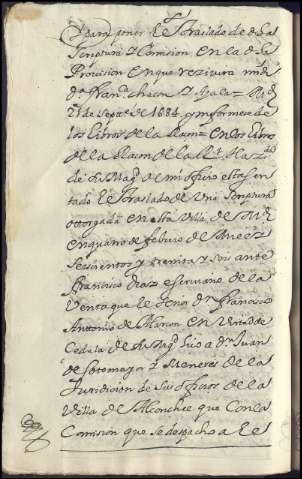 para poner el traslado de la
scriptura y Comision en la de
Provision en que
Don Franco chacon y Ayala Md
21 de Sepre de 1684 y informe de
los libros de la Razon en los libros
de la Razon de la Rl Hazda
de su Magd de mi ofizio esta sen
tado el traslado de una scriptura
ottorgada en esta Villa de Md
en quatro de febrero de mil y
Seiscientos y treinta y seis ante
Francisco Diaz escrivano de la
Venta que el señor Dn Francisco
Antonio de Alarcon en virtud de
Cedula de su Magd hizo a Dn Juan
de Sotomayor y Meneses de la
Juridicion de Su de la
Villa de Alconchel que Con la
Comision que se despacho a el